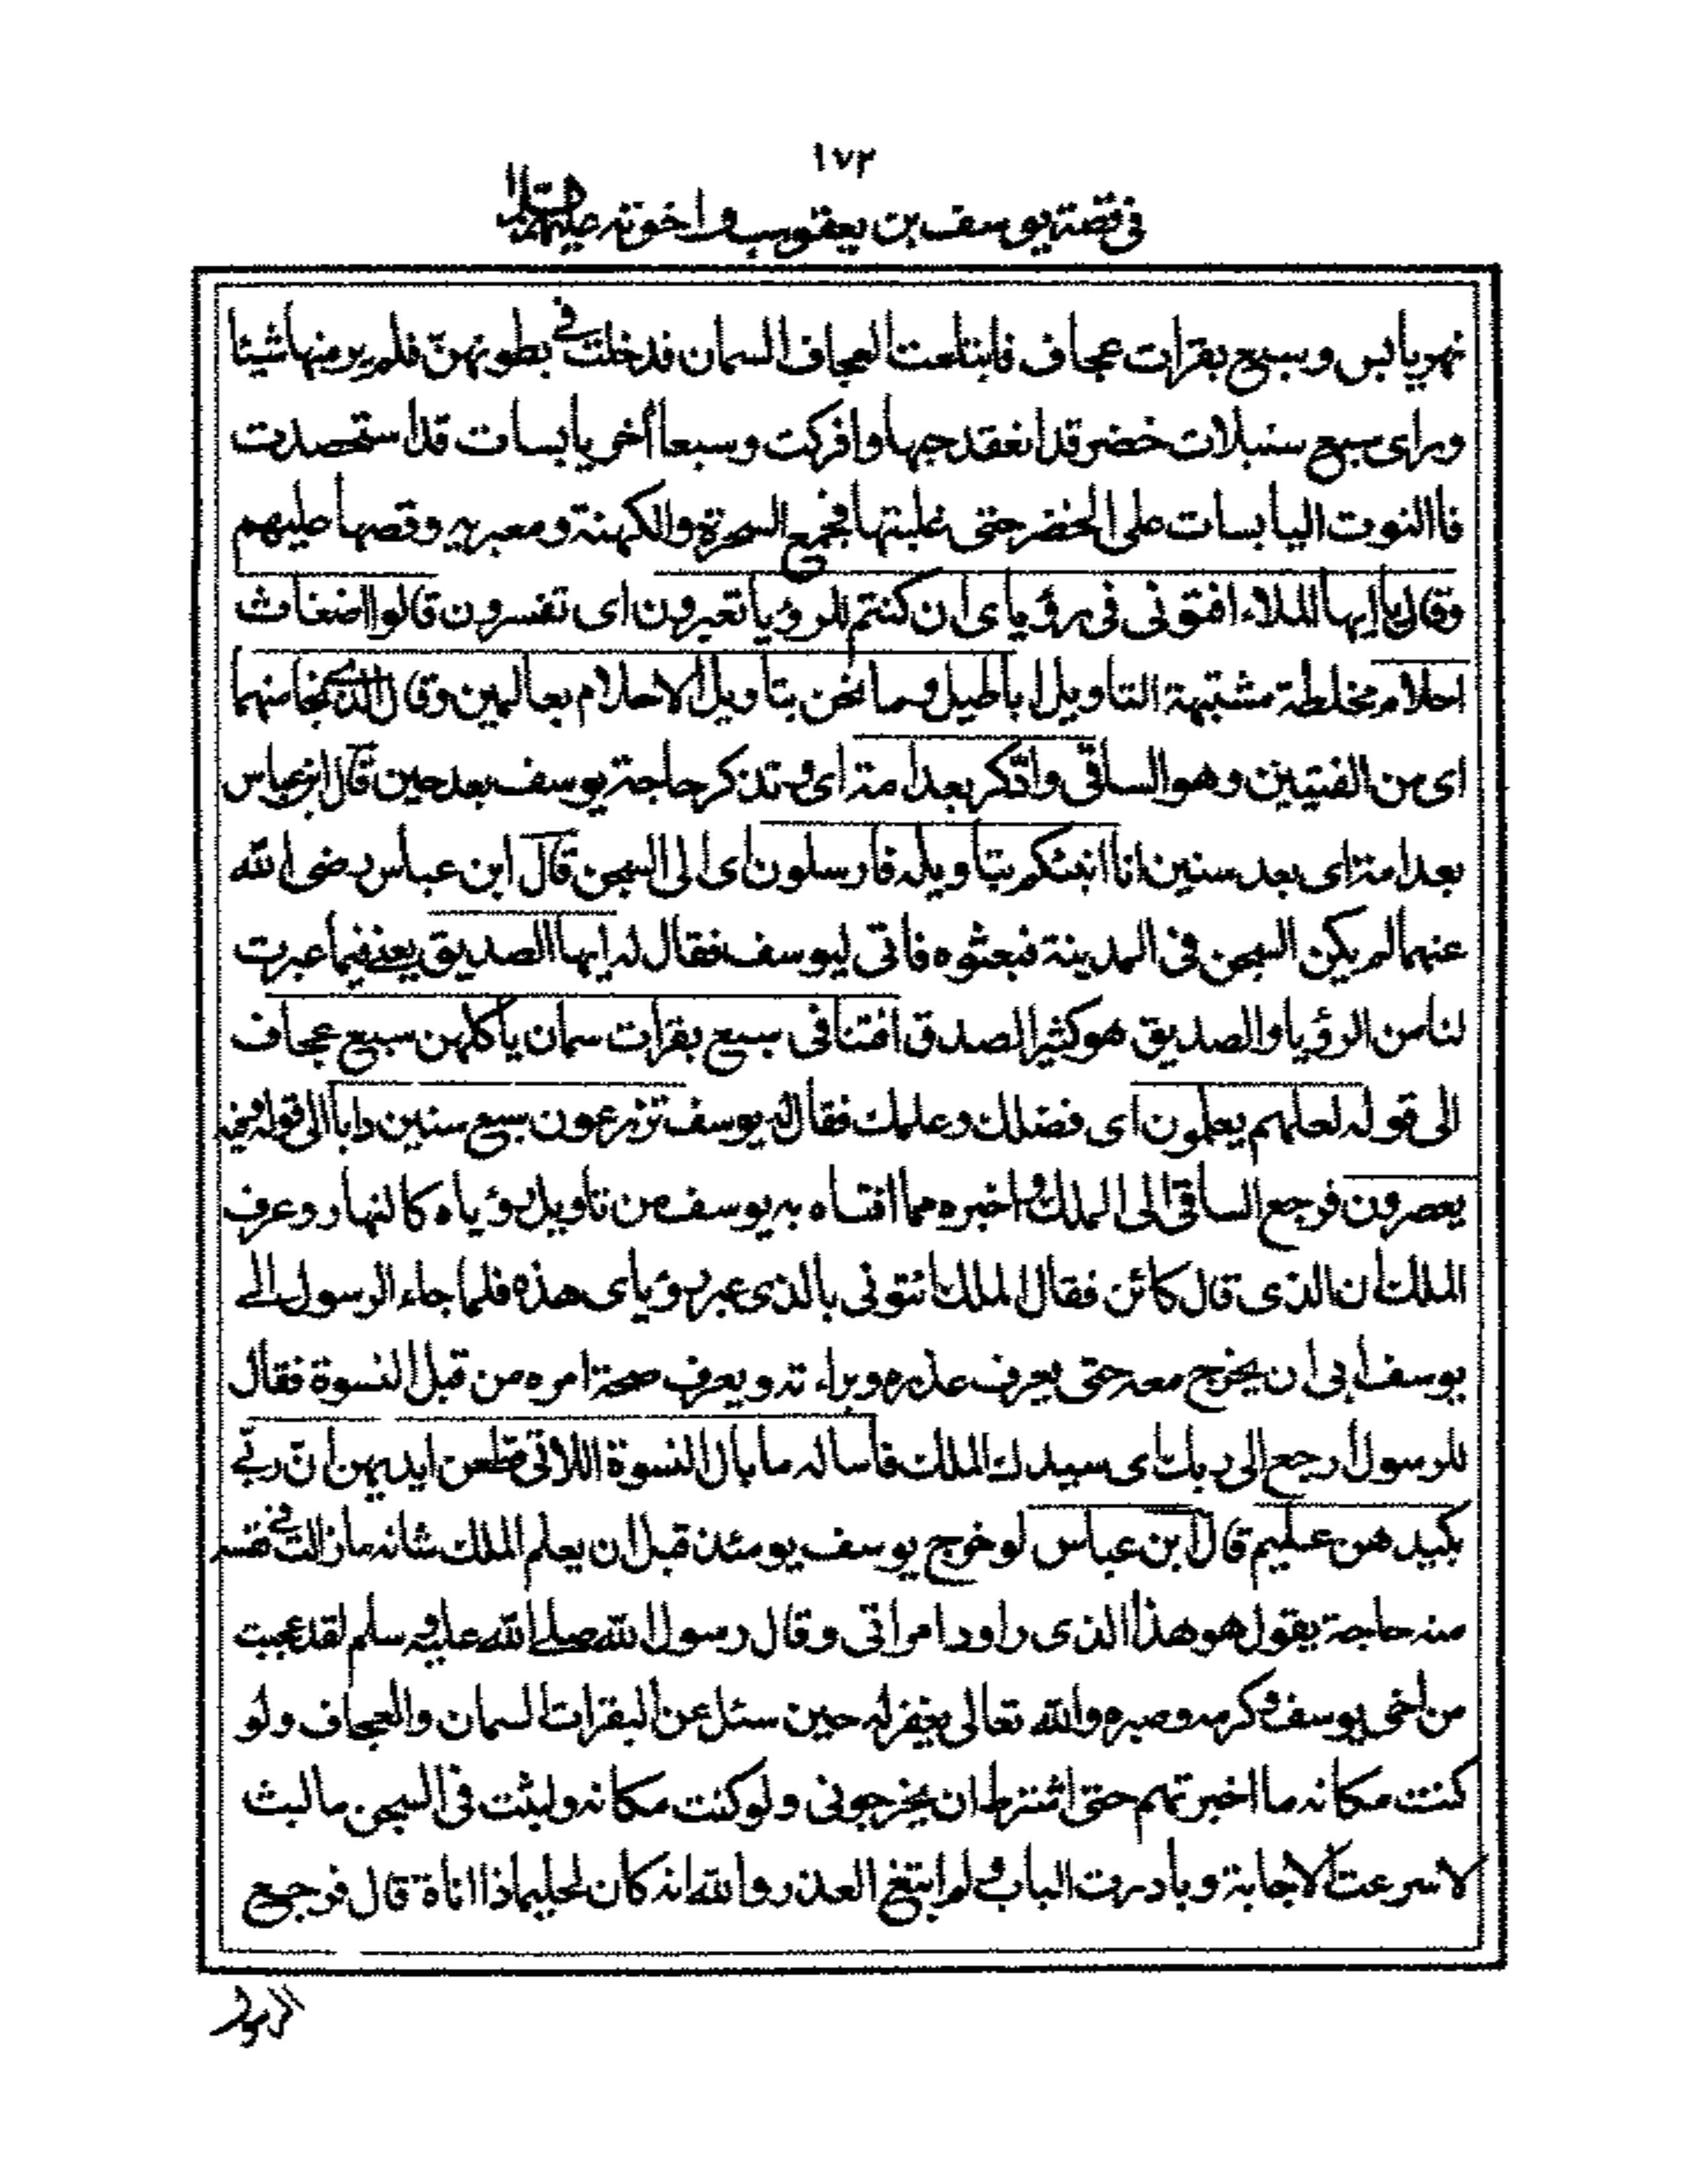 ١٧٢
فى قصة يوسف بن يعقوب واخوته عليهم السلام
نهر يابس وسبع بقرات عجاف فابتلعت العجاف السمان فدخلت فى بطونهنّ فلم ير منها شيئا
وراى سبع سنبلات خضر قد انعقد حبها وافركت وسبعا أخر يابسات قد استحصدت
فاالتوت اليابسات على الخضر حتى غلبنها فجمع السحرة والكهنة ومعبريه وقصها عليهم
وقال يا ايها الملاء افتونى فى رؤياى ان كنتم للرؤيا تعبرون اى تفسرون قالوا اضغاث
احلام مخلطة مشتبهة التاويل اباطيل وما نحن بتاويل الاحلام بعالمين وقال الذى نجا منهما
اى من الفتيين وهو الساقى وادّكر بعد امة اى وتذكر حاجة يوسف بعد حين قال ابن عباس
بعد امة اى بعد سنين انا انبئكم بتاويله فارسلون اى الى السجن قال ابن عباس رضى الله
عنهما لم يكن السجن فى المدينة فبعثوه فاتى ليوسف فقال له ايها الصديق يعنى فيما عبرت
لنا من الرؤيا والصديق هو كثير الصدق افتنا فى سبع بقرات سمان ياكلهن سبع عجاف
الى قوله لعلهم يعلمون اى فضلك وعلمك فقال له يوسف تزرعون سبع سنين دابا الى قوله وفيه
يعصرون فرجع الساقى الى الملك واخبره مما افتاه به يوسف من تاويل رؤياه كالنهار وعرف
الملك ان الذى قال كائن فقال الملك ائتونى بالذى عبر رؤياى هذه فلما جاء الرسول الى
يوسف ابى ان يخرج معه حتى يعرف عذره وبراء ته ويعرف صحة امره من قبل النسوة فقال
للرسول ارجع الى ربك اى سيدك الملك فاساله ما بال النسوة اللاتى قطعن ايديهن ان ربّى
بكيدهن عليم قال ابن عباس لو خرج يوسف يومئذ قبل ان يعلم الملك شانه مازالت فى نفسه
منه حاجة يقول هو هذا الذى راود امراتى وقال رسول الله صلى الله عليه وسلم لقد عجبت
من اخى يوسف وكرمه وصبره والله تعالى يغفر له حين سئل عن البقرات السمان والعجاف ولو
كنت مكانه ما اخبرتهم حتى اشترط ان يخرجونى ولو كنت مكانه ولبثت فى السجن ما لبث
لاسرعت الاجابة وبادرت الباب ولم ابتغ العذر والله انه كان لحليما ذا اناة قال فرجع
الرسول